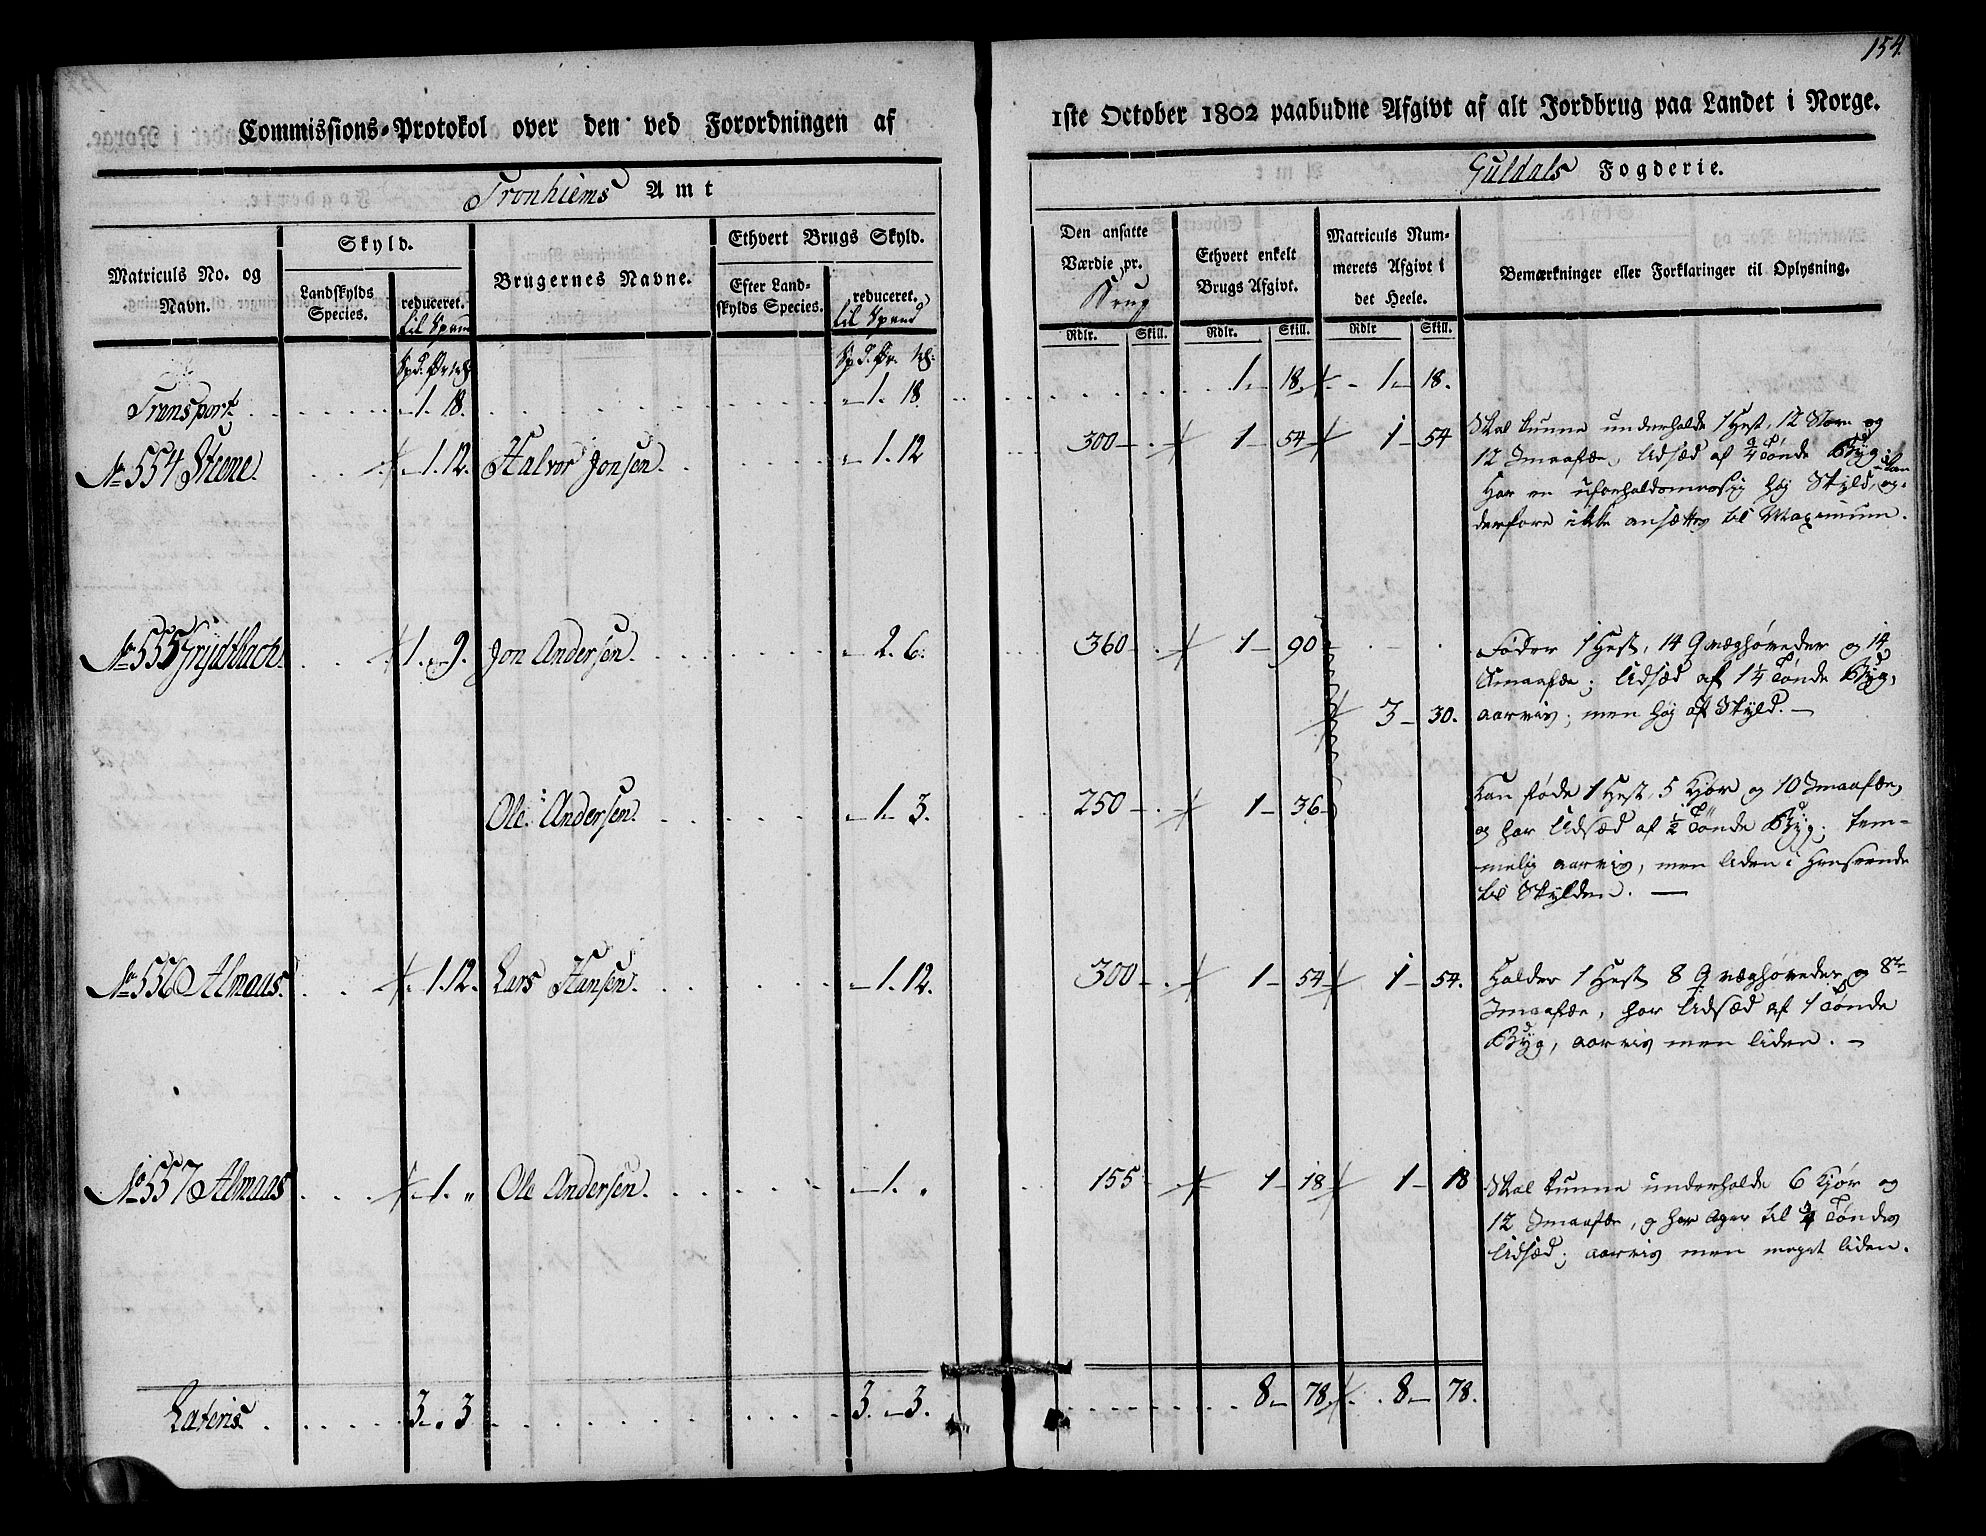 154.
Commissions-Protokol over den ved Forordningen af
1ste October 1802 paabudne Afgivt af alt Jordbrug paa Landet i Norge.
Tronhiems Amt
Guldals Fogderie.
Matriculs No. og Navn.
Skyld.
Landskylds Species.
reduceret. til Spand
Brugernes Navne.
Ethvert Brugs Skyld.
Efter Landskylds Species.
reduceret. til Spand
Den ansatte Værdie pr. Brug
Ethvert enkelt Brugs Afgivt.
Matriculs Nummerets Afgivt i det Heele.
Bemærkninger eller Forklaringer til Oplysning.
Rdlr. Skill. Rdlr. Skill. Rdlr Skill.
Transport 1. 18. 1. 18. 1 - 18. 1 - 18.
No 554 Stene. 1. 12. Halvor Jonsen. 1. 12 300 - 1 - 54 1 - 54
Skal kunne underholde 1 Hest, 12 Store og
12 Smaafæe, Udsæd af 3/4 Tønde Byg; kan
Har en uforholdsmæssig høj Skyld, og
derfore ikke ansættes til Maximum.
No 555 Frydtbach. 1. 9. Jon Andersen. 2. 6. 360 - 1 - 90
Føder 1 Hest, 14 Qvæghøveder og 14
Smaafæe; Udsæd af 1 1/4 Tønde Byg,
3 - 30.
aarvis; men høj af Skyld. -
Ole Andersen. 1 - 3. 250 - 1 - 36
Kan føde 1 Hest, 5 Kjør og 10 Smaafæe,
og har Udsæd af 1/2 Tønde Byg; tem-
melig aarvis, men liden i Henseende
til Skylden. -
No 556 Almaas. 1. 12. Lars Hansen. 1. 12. 300 - 1 - 54 1 - 54.
Holder 1 Hest 8 Qvæghøveder og 8te
Smaafæe, har Udsæd af 1 Tønde
Byg, aarvis men liden. -
No 557 Almaas 1. " Ole Andersen. 1. " 155 1 - 18 1 - 18
Skal kunne underholde 6 Kjør og
12 Smaafæe, og har Ager til 3/4 Tøndes
Udsæd; aarvis men meget liden.
Lateris 3 - 3 3 - 3. 8 - 78. 8 - 78.